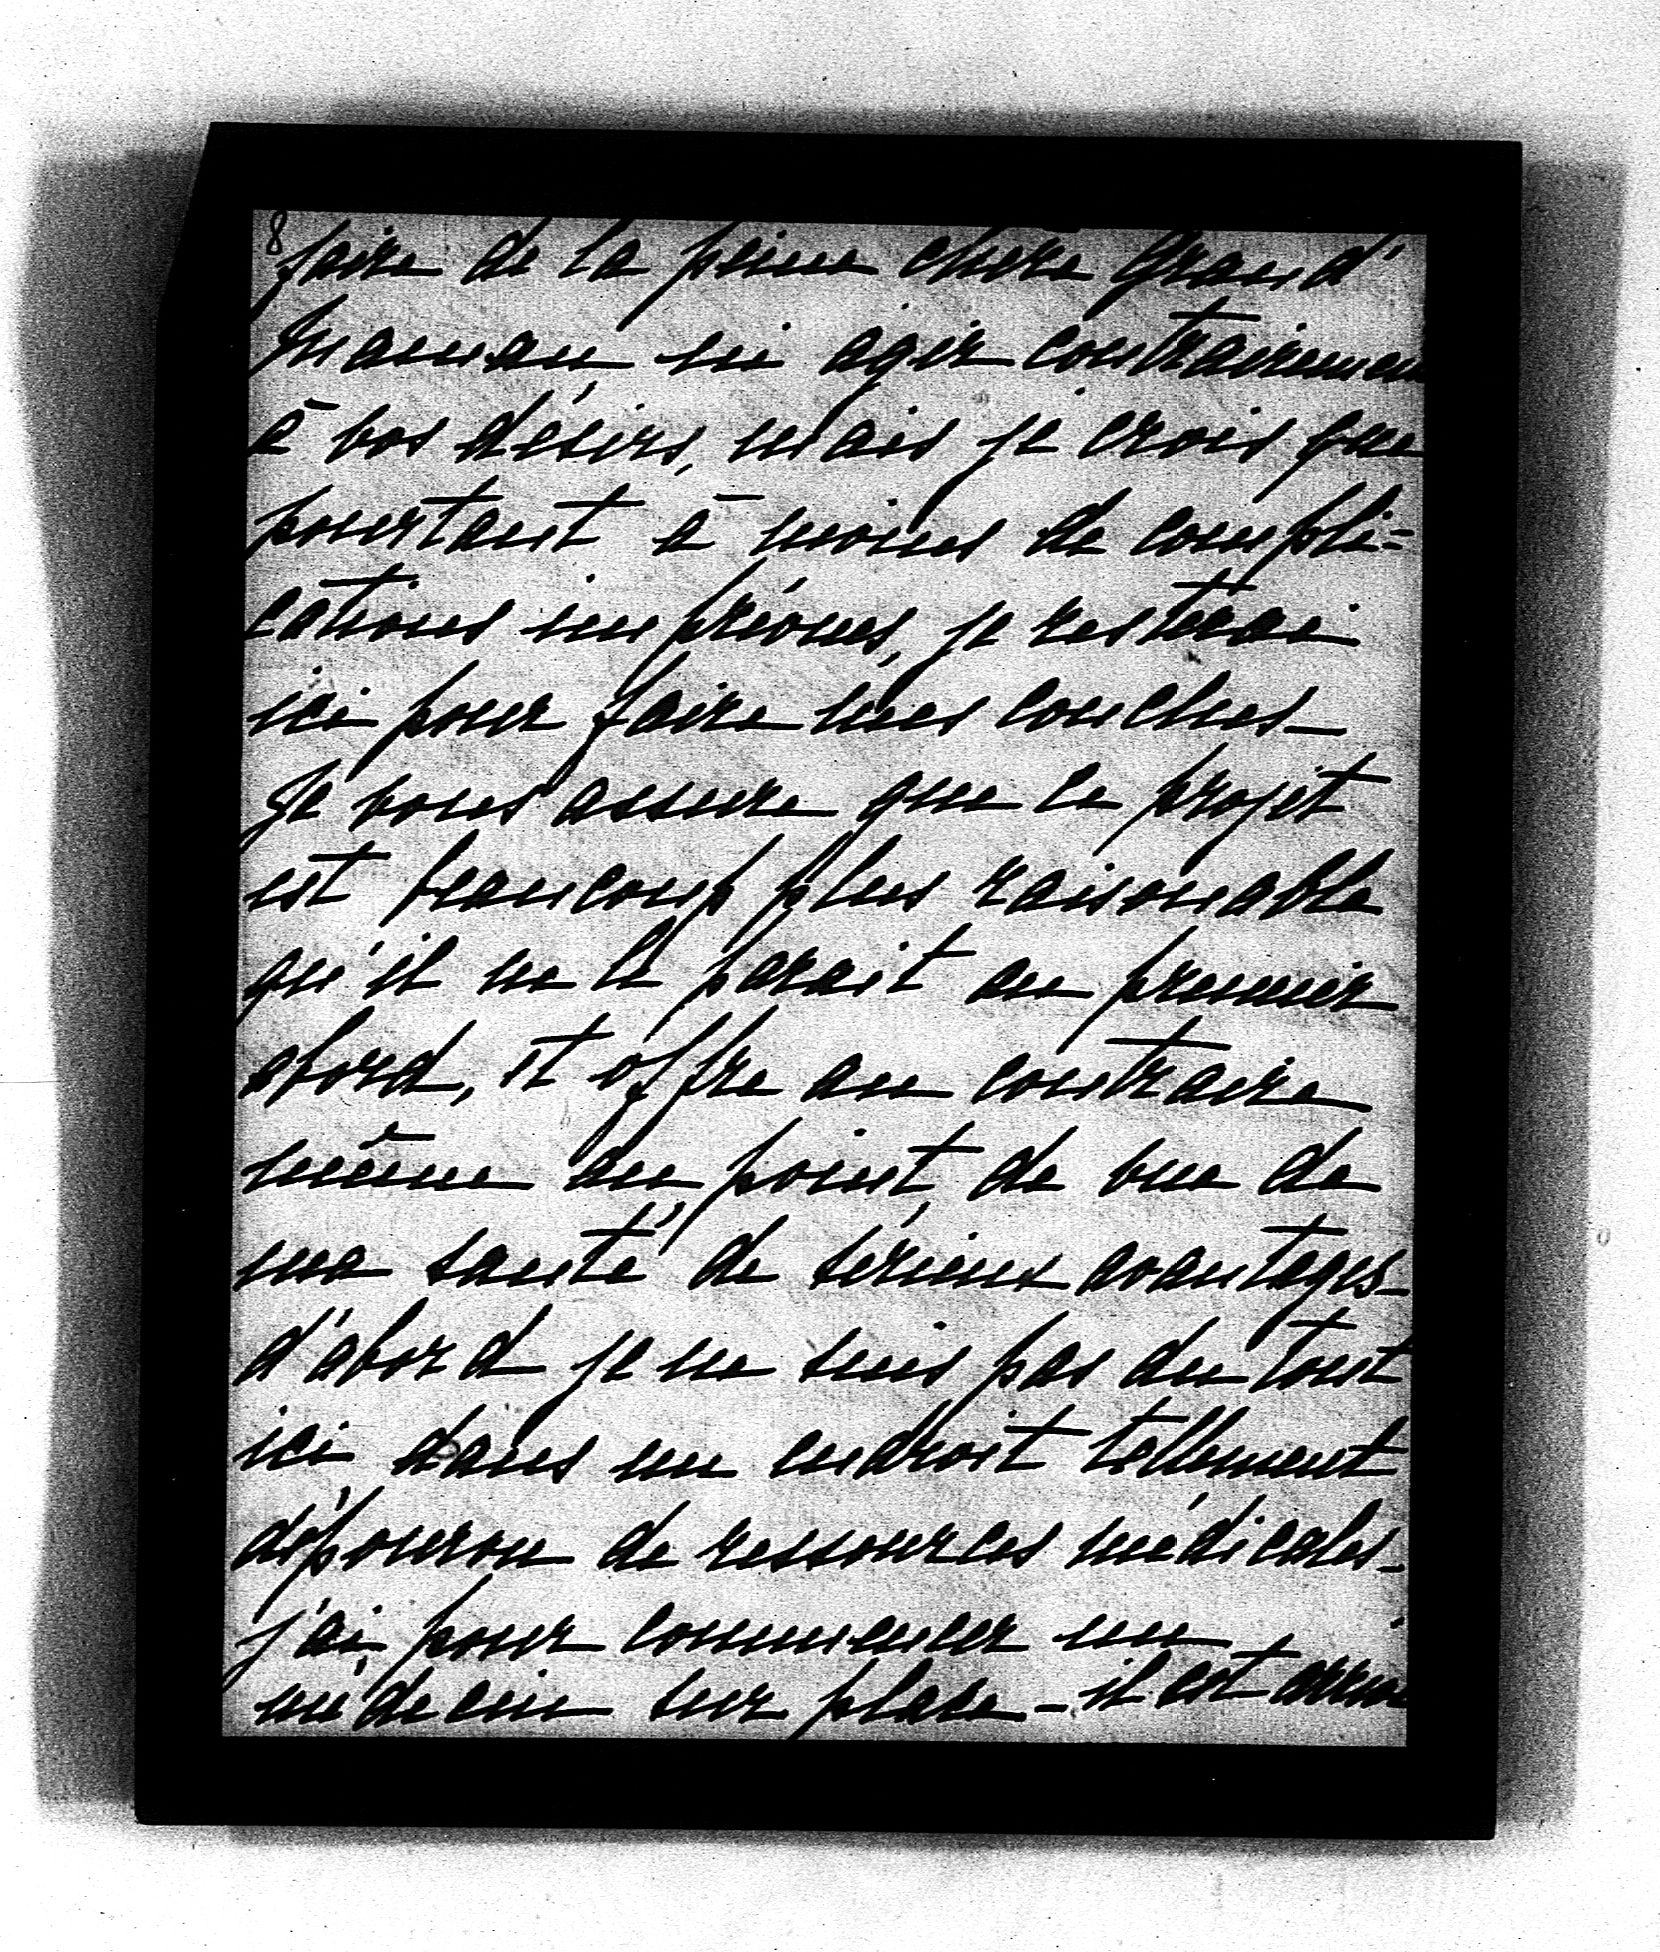 8
faire de la peine chère Grand'
Maman ni agir contrairement
à vos désirs, mais je crois que
pourtant à moins de compli=
cations imprévues, je resterai
ici pour faire mes couches_
Je vous assure que le projet
est beaucoup plus raisonable
qu'il ne le parait au premier
abord, et offre au contraire
même au point de vue de
ma santé de sérieux avantages_
d'abord je ne suis pas du tout
ici dans un endroit tellement
dépourvu de ressources médicales_
j'ai pour commencer un
médecin sur place_ il est arrivé